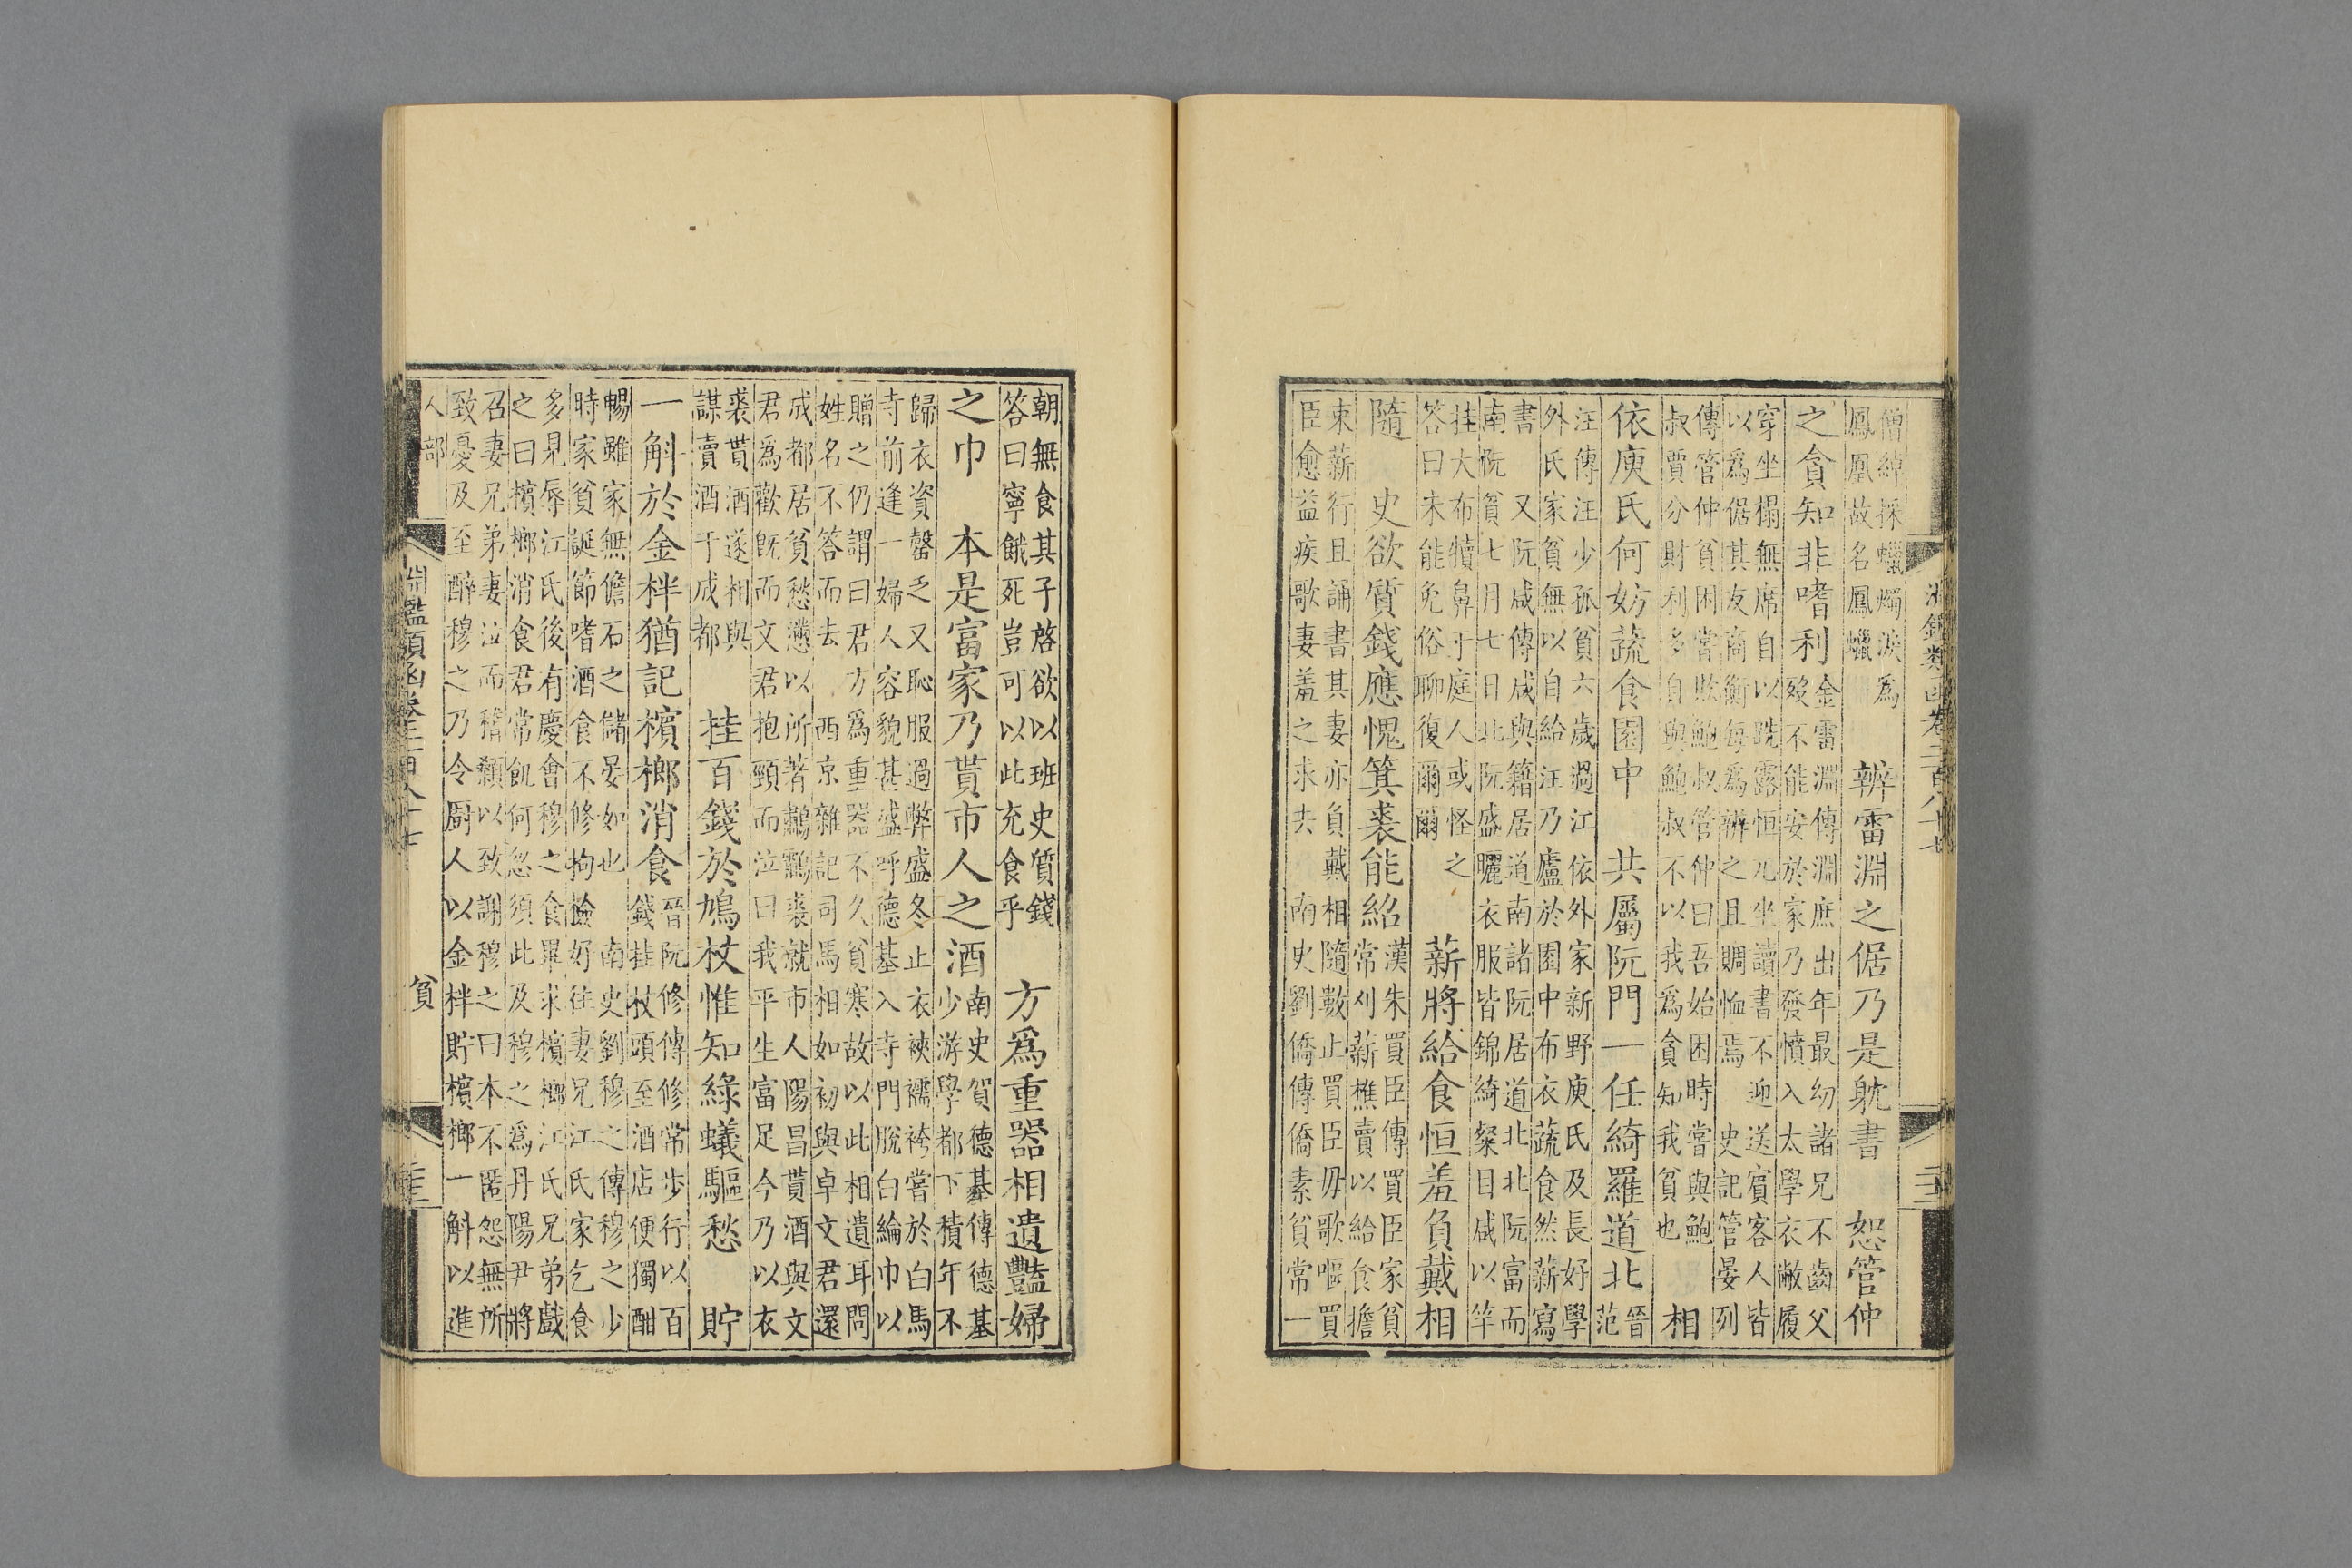 僧綽採蠟燭淚爲
鳳凰故名鳳蠟
辨雷淵之倨乃是躭書 恕管仲
之貪知非嗜利
金雷淵傳淵庶出年最幼諸兄不齒父
歿不能安於家乃發憤入太學衣敝履
穿坐榻無席自以跣露恒兀坐讀書不迎送賓客人皆
以爲倨其友商衡每爲辨之且賙恤焉
史記管晏列
傳管仲貧困嘗欺鮑叔管仲曰吾始困時嘗與鮑
叔賈分財利多自與鮑叔不以我爲貪知我貧也
相
依庾氏何妨蔬食園中 共屬阮門一任綺羅道北
晉
范
汪傳汪少孤貧六歲過江依外家新野庾氏及長好學
外氏家貧無以自給汪乃廬於園中布衣蔬食然薪寫
書 又阮咸傳咸與籍居道南諸阮居道北北阮富而
南阮貧七月七日北阮盛曬衣服皆錦綺粲目咸以竿
挂大布犢鼻于庭人或怪之
答曰未能免俗聊復爾爾
薪將給食恒羞負戴相
隨 史欲質錢應愧箕裘能紹
漢朱買臣傳買臣家貧
常刈薪樵賣以給食擔
束薪行且誦書其妻亦負戴相隨數止買臣毋歌嘔買
臣愈益疾歌妻羞之求去 南史劉僑傳僑素貧常一
淵鑑類函卷二百八十七
朝無食其子啓欲以班史質錢
答曰寧餓死豈可以此充食乎
方爲重器相遺豔婦
之巾 本是富家乃貰市人之酒
南史賀德基傳德基
少游學都下積年不
歸衣資罄乏又恥服過弊盛冬止衣裌襦袴嘗於白馬
寺前逢一婦人容貌甚盛呼德基入寺門脫白綸巾以
贈之仍謂曰君方爲重器不久貧寒故以此相遺耳問
姓名不答而去 西京雜記司馬相如初與卓文君還
成都居貧愁懣以所著鷫鸘裘就市人陽昌貰酒與文
君爲歡旣而文君抱頸而泣曰我平生富足今乃以衣
裘貰酒遂相與
謀賣酒于成都
挂百錢於鳩杖惟知綠蟻驅愁 貯
一斛於金柈猶記檳榔消食
晉阮修傳修常步行以百
錢挂杖頭至酒店便獨酣
暢雖家無儋石之儲晏如也 南史劉穆之傳穆之少
時家貧誕節嗜酒食不修拘檢好往妻兄江氏家乞食
多見辱江氏後有慶會穆之食畢求檳榔江氏兄弟戲
之曰檳榔消食君常飢何忽須此及穆之爲丹陽尹將
召妻兄弟妻泣而稽顙以致謝穆之曰本不匿怨無所
致憂及至醉穆之乃令厨人以金柈貯檳榔一斛以進
人部
淵鑑類函卷二百八十七
貧